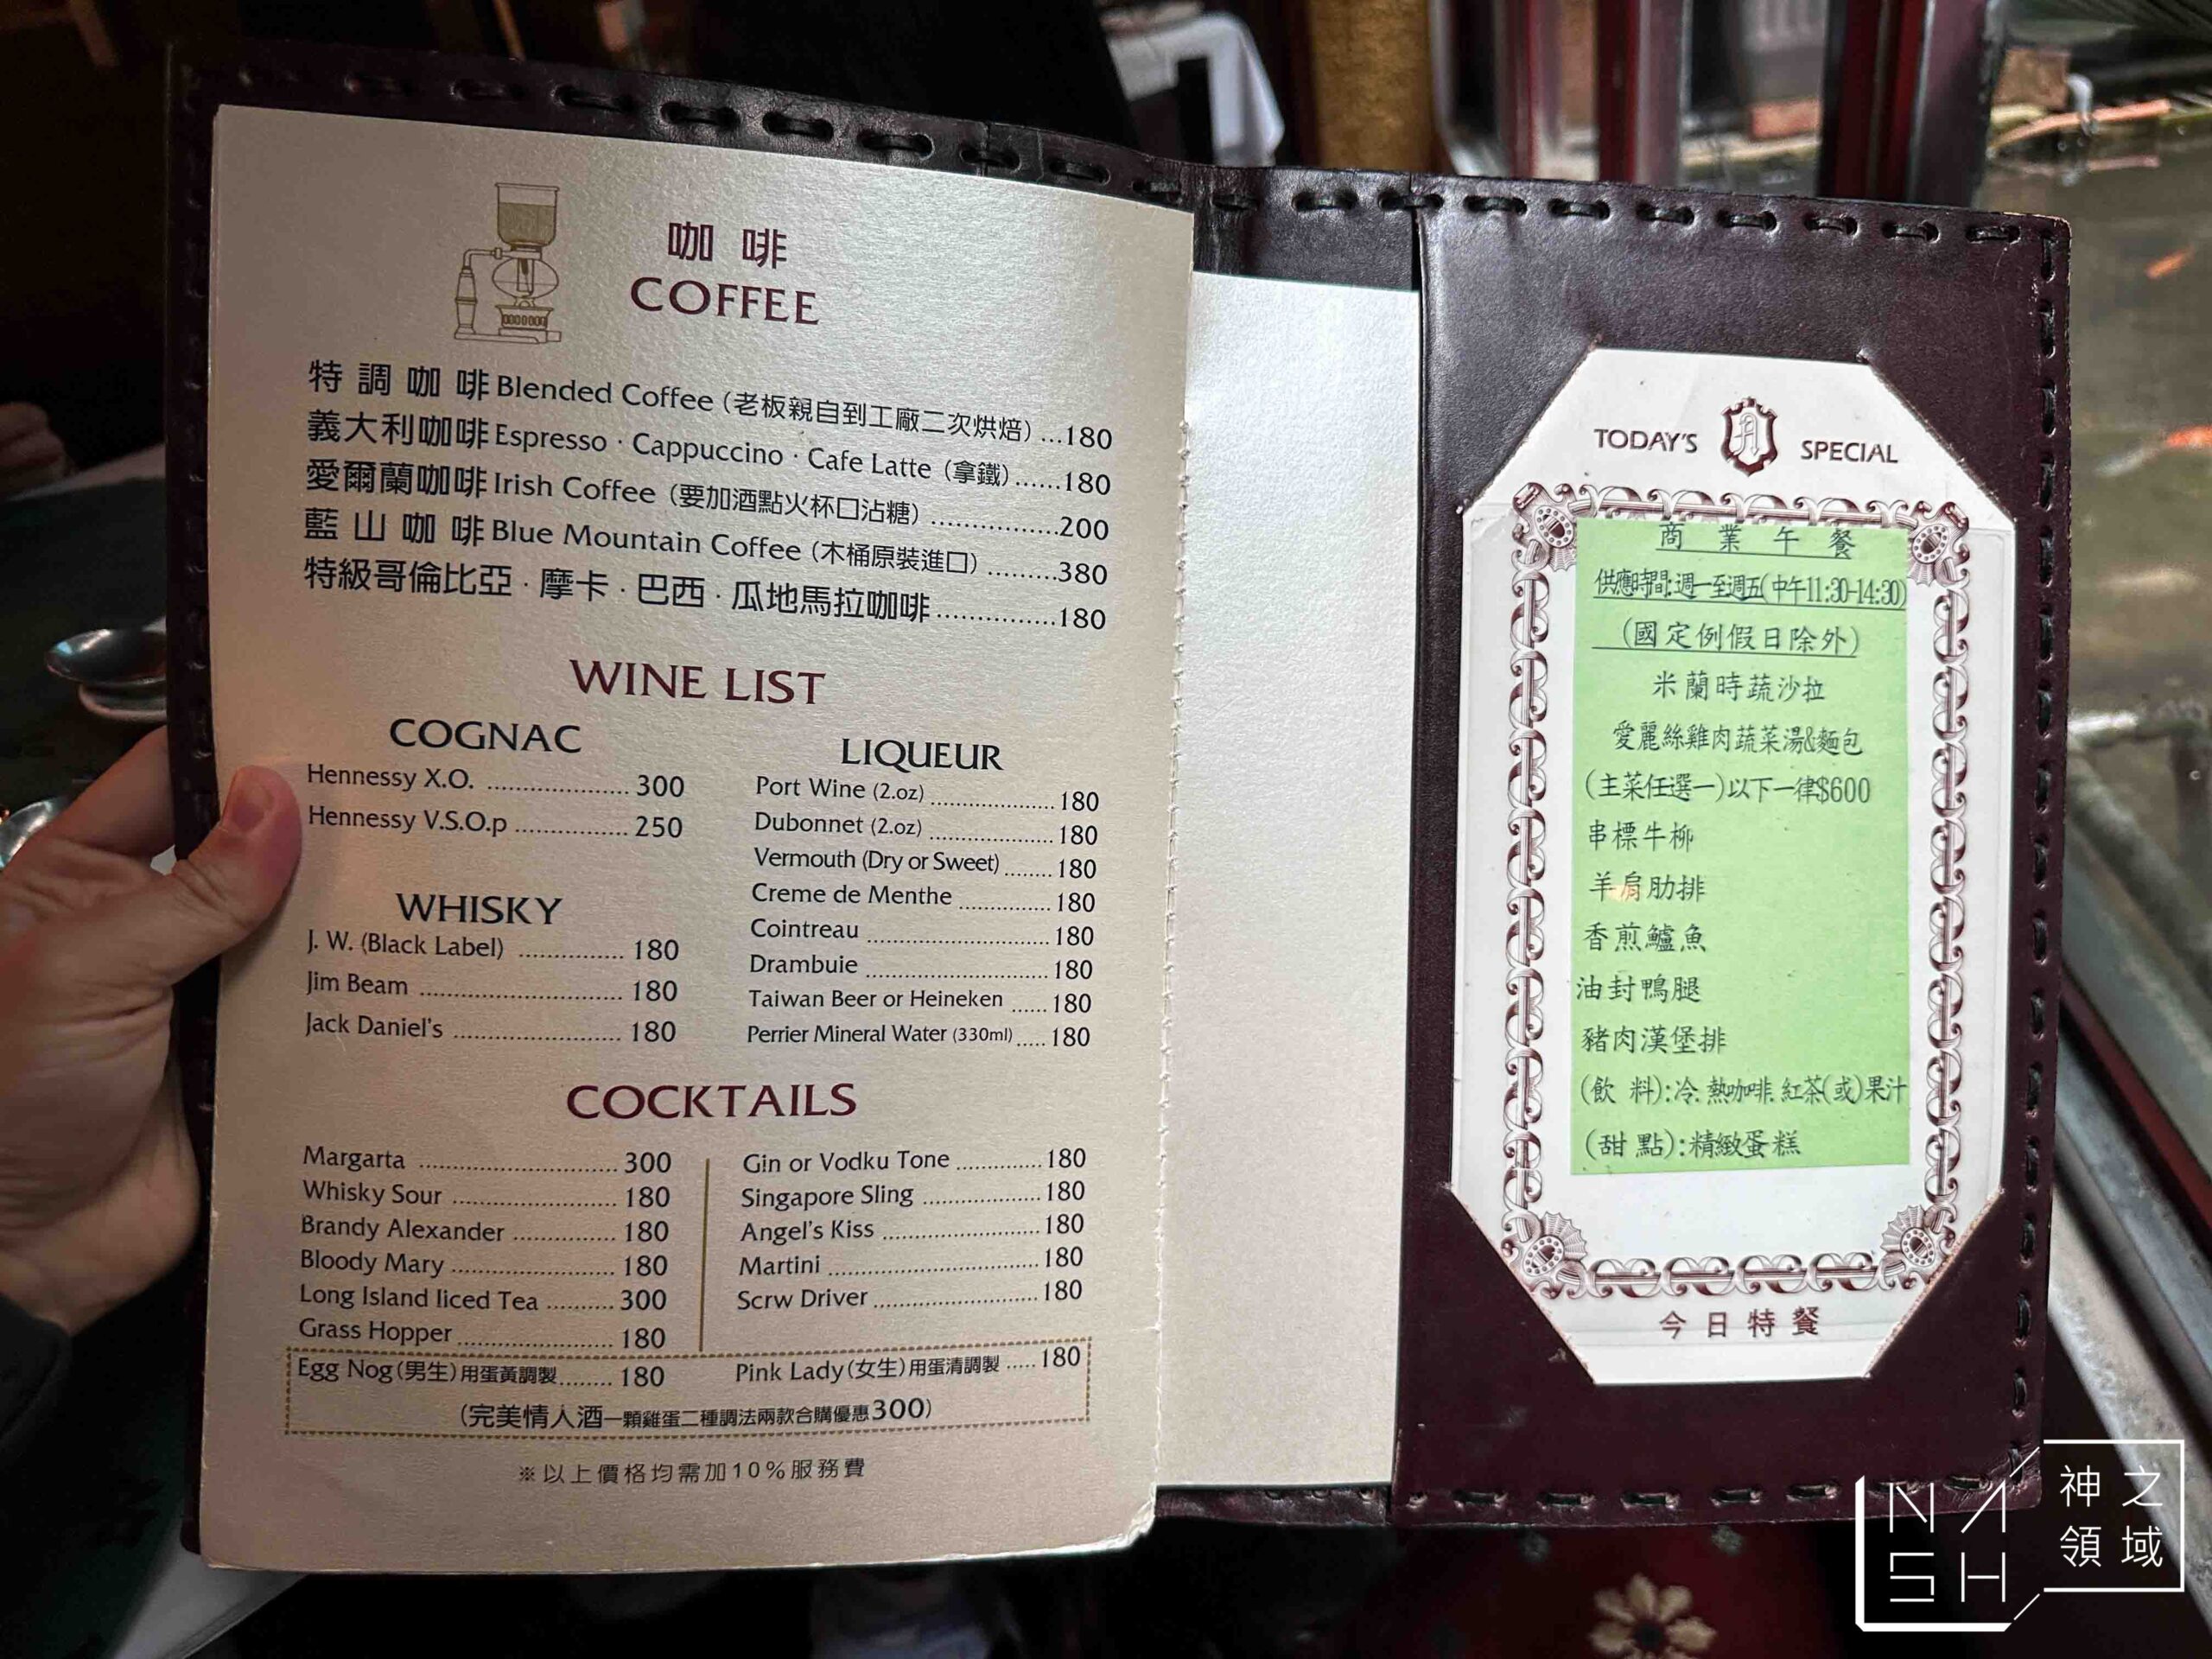 咖啡
COFFEE
特調咖啡 Blended Coffee (老板親自到工廠二次烘焙) ...180
義大利咖啡 Espresso · Cappuccino · Cafe Latte (拿鐵) ......180
愛爾蘭咖啡 Irish Coffee (要加酒點火杯口沾糖) ................200
藍山咖啡 Blue Mountain Coffee (木桶原裝進口) .........380
特級哥倫比亞 · 摩卡 · 巴西 · 瓜地馬拉咖啡 ................180
WINE LIST
COGNAC
Hennessy X.O. .................... 300
Hennessy V.S.O.p ................ 250
WHISKY
J. W. (Black Label) ............... 180
Jim Beam ............................. 180
Jack Daniel's ........................ 180
LIQUEUR
Port Wine (2.oz) .................. 180
Dubonnet (2.oz) .................. 180
Vermouth (Dry or Sweet) ........ 180
Creme de Menthe ............... 180
Cointreau ............................ 180
Drambuie ............................ 180
Taiwan Beer or Heineken ...... 180
Perrier Mineral Water (330ml) ..... 180
COCKTAILS
Margarta ............................. 300
Whisky Sour ........................ 180
Brandy Alexander ............... 180
Bloody Mary ........................ 180
Long Island Iiced Tea .......... 300
Grass Hopper ....................... 180
Gin or Vodku Tone ............. 180
Singapore Sling .................. 180
Angel's Kiss ........................ 180
Martini ................................ 180
Scrw Driver ......................... 180
Egg Nog (男生) 用蛋黃調製 ........ 180
Pink Lady (女生) 用蛋清調製 ..... 180
(完美情人酒一顆雞蛋二種調法兩款合購優惠300)
※以上價格均需加10%服務費
TODAY'S A SPECIAL
商業午餐
供應時間:週一至週五(中午11:30-14:30)
(國定例假日除外)
米蘭時蔬沙拉
愛麗絲雞肉蔬菜湯&麵包
(主菜任選一)以下一律$600
串標牛柳
羊肩肋排
香煎鱸魚
油封鴨腿
豬肉漢堡排
(飲 料):冷.熱咖啡.紅茶(或)果汁
(甜 點):精緻蛋糕
今日特餐
NASH
神之領域